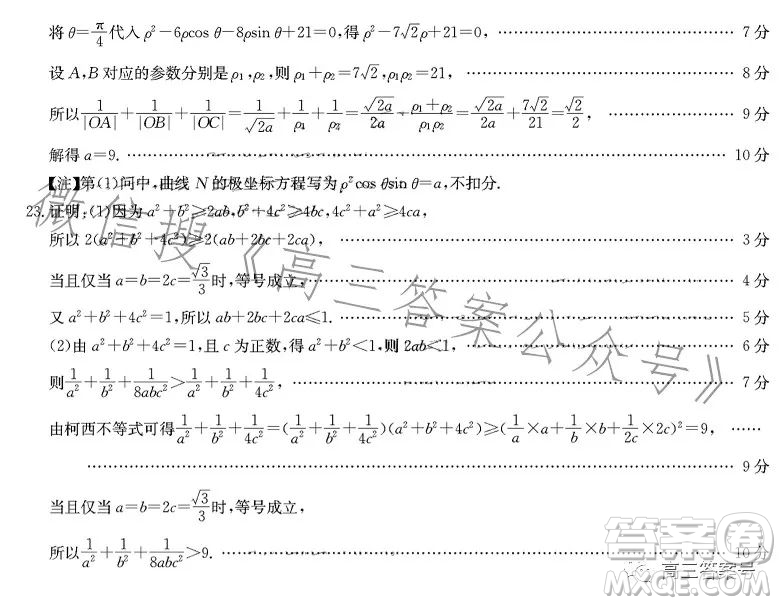 将θ=π/4代入ρ²-6ρcos θ-8ρsin θ+21=0,得ρ²-7√2ρ+21=0, 7分
设A,B对应的参数分别是ρ₁,ρ₂,则ρ₁+ρ₂=7√2,ρ₁ρ₂=21, 8分
所以1/|OA|+1/|OB|+1/|OC|=1/√(2a)+1/ρ₁+1/ρ₂=√(2a)/2a+(ρ₁+ρ₂)/(ρ₁ρ₂)=√(2a)/2a+7√2/21=√2/2, 9分
解得a=9. 10分
【注】第(1)问中,曲线N的极坐标方程写为ρ²cos θsin θ=a,不扣分.
23.证明:(1)因为a²+b²≥2ab,b²+4c²≥4bc,4c²+a²≥4ca,
所以2(a²+b²+4c²)≥2(ab+2bc+2ca), 3分
当且仅当a=b=2c=√3/3时,等号成立, 4分
又a²+b²+4c²=1,所以ab+2bc+2ca≤1. 5分
(2)由a²+b²+4c²=1,且c为正数,得a²+b²<1,则2ab<1, 6分
则1/a²+1/b²+1/(8abc²)>1/a²+1/b²+1/(4c²), 7分
由柯西不等式可得1/a²+1/b²+1/(4c²)=(1/a²+1/b²+1/(4c²))(a²+b²+4c²)≥(1/a×a+1/b×b+1/(2c)×2c)²=9, ……
9分
当且仅当a=b=2c=√3/3时,等号成立,
所以1/a²+1/b²+1/(8abc²)>9. 10分
微信搜《高三答案公众号》
答案卷
高三答案号